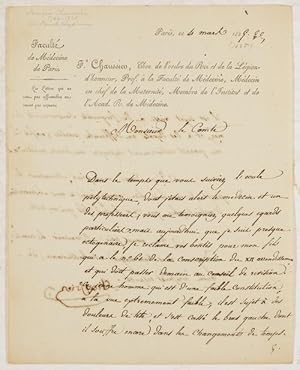 Paris, ce 4 mars 182
Faculté
de Médecine
de Paris
Fs. Chaussier, Chev. de l'ordre du Roi et de la Légion
d'honneur, Prof. à la Faculté de Médecine, Médecin
en chef de la Maternité, Membre de l'Institut et de
l'Acad. R. de Médecine.
Monsieur le Comte
Dans le temps que vous suiviez l'école
polytechnique, dont j'étais alors le médecin et un
des professeurs, vous me témoigniez quelques égards
particuliers, mais aujourd'hui que je suis presque
octogénaire, je réclame vos bontés pour mon fils
qui a le n° 60 de la conscription du XII arrondissement
et qui doit passer demain au conseil de révision
jeune homme, qui est d'une faible constitution,
a la vue extrêmement faible, il est sujet à des
douleurs de tête, et s'est cassé le bras gauche dont
il souffre encore dans les changements de temps.